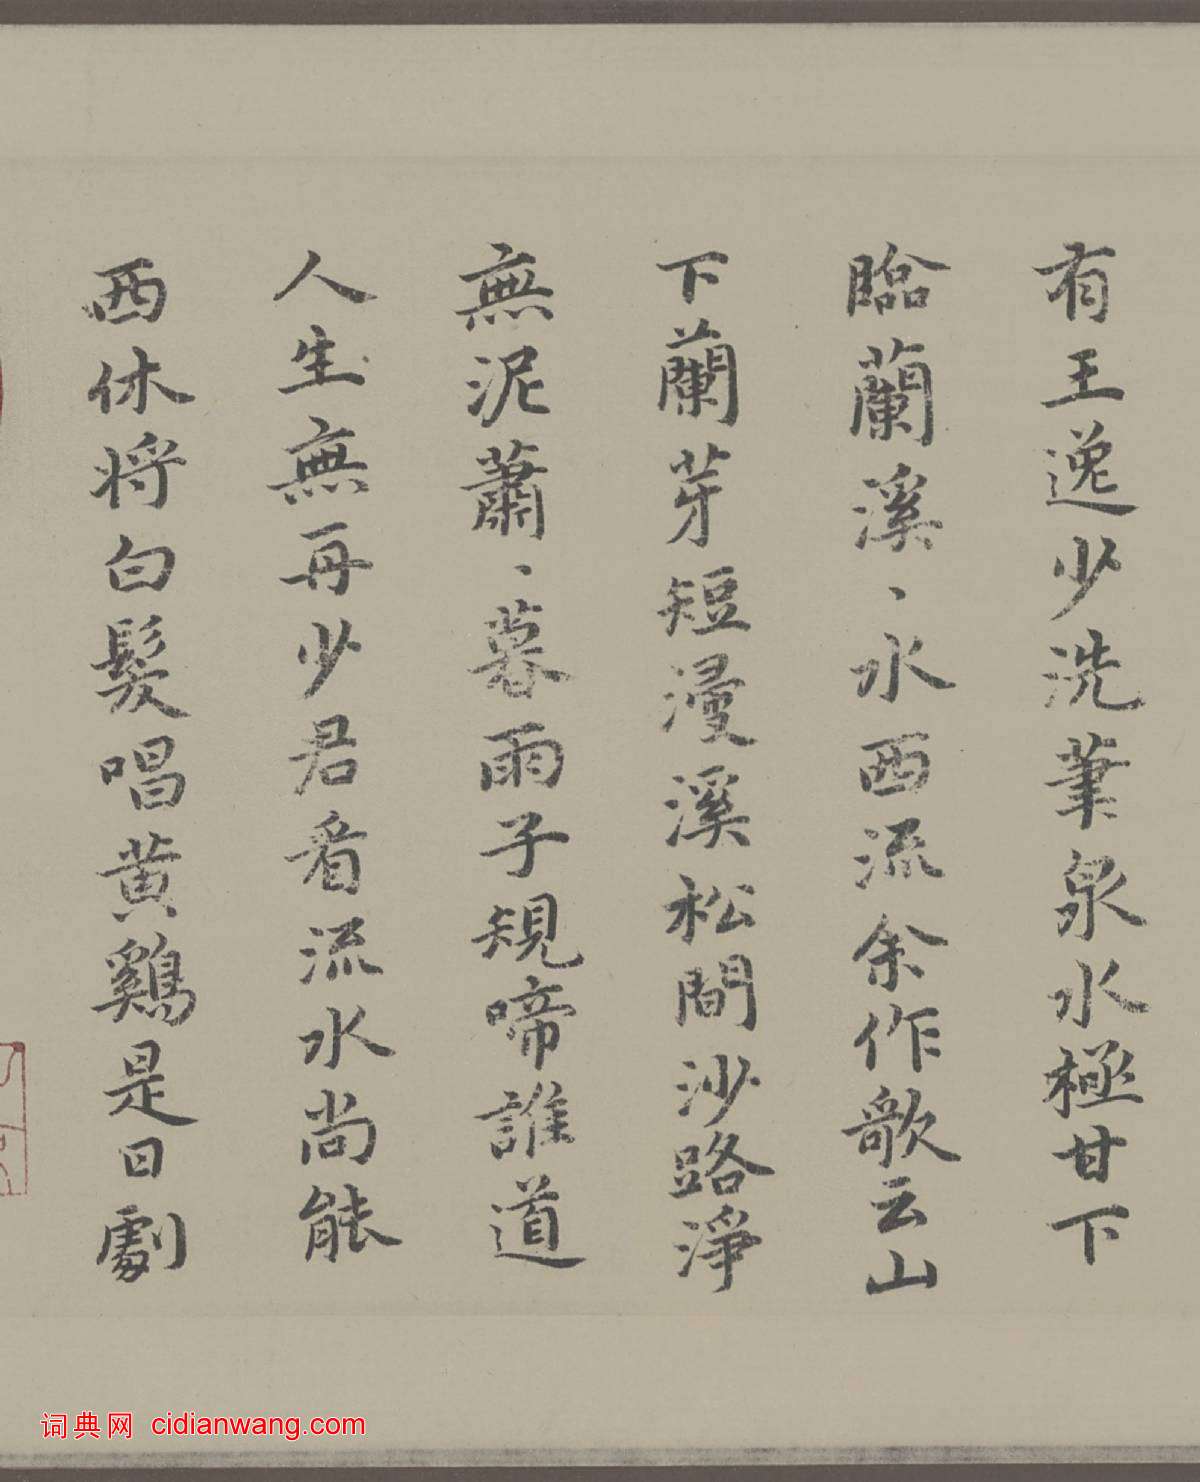 有王逸少洗筆泉水極甘下
臨蘭溪、水西流余作歌云山
下蘭芽短漫溪松間沙路淨
無泥蕭、暮雨子規啼誰道
人生無再少君看流水尚能
西休將白髮唱黄鷄是日劇
词典网 cidianwang.com